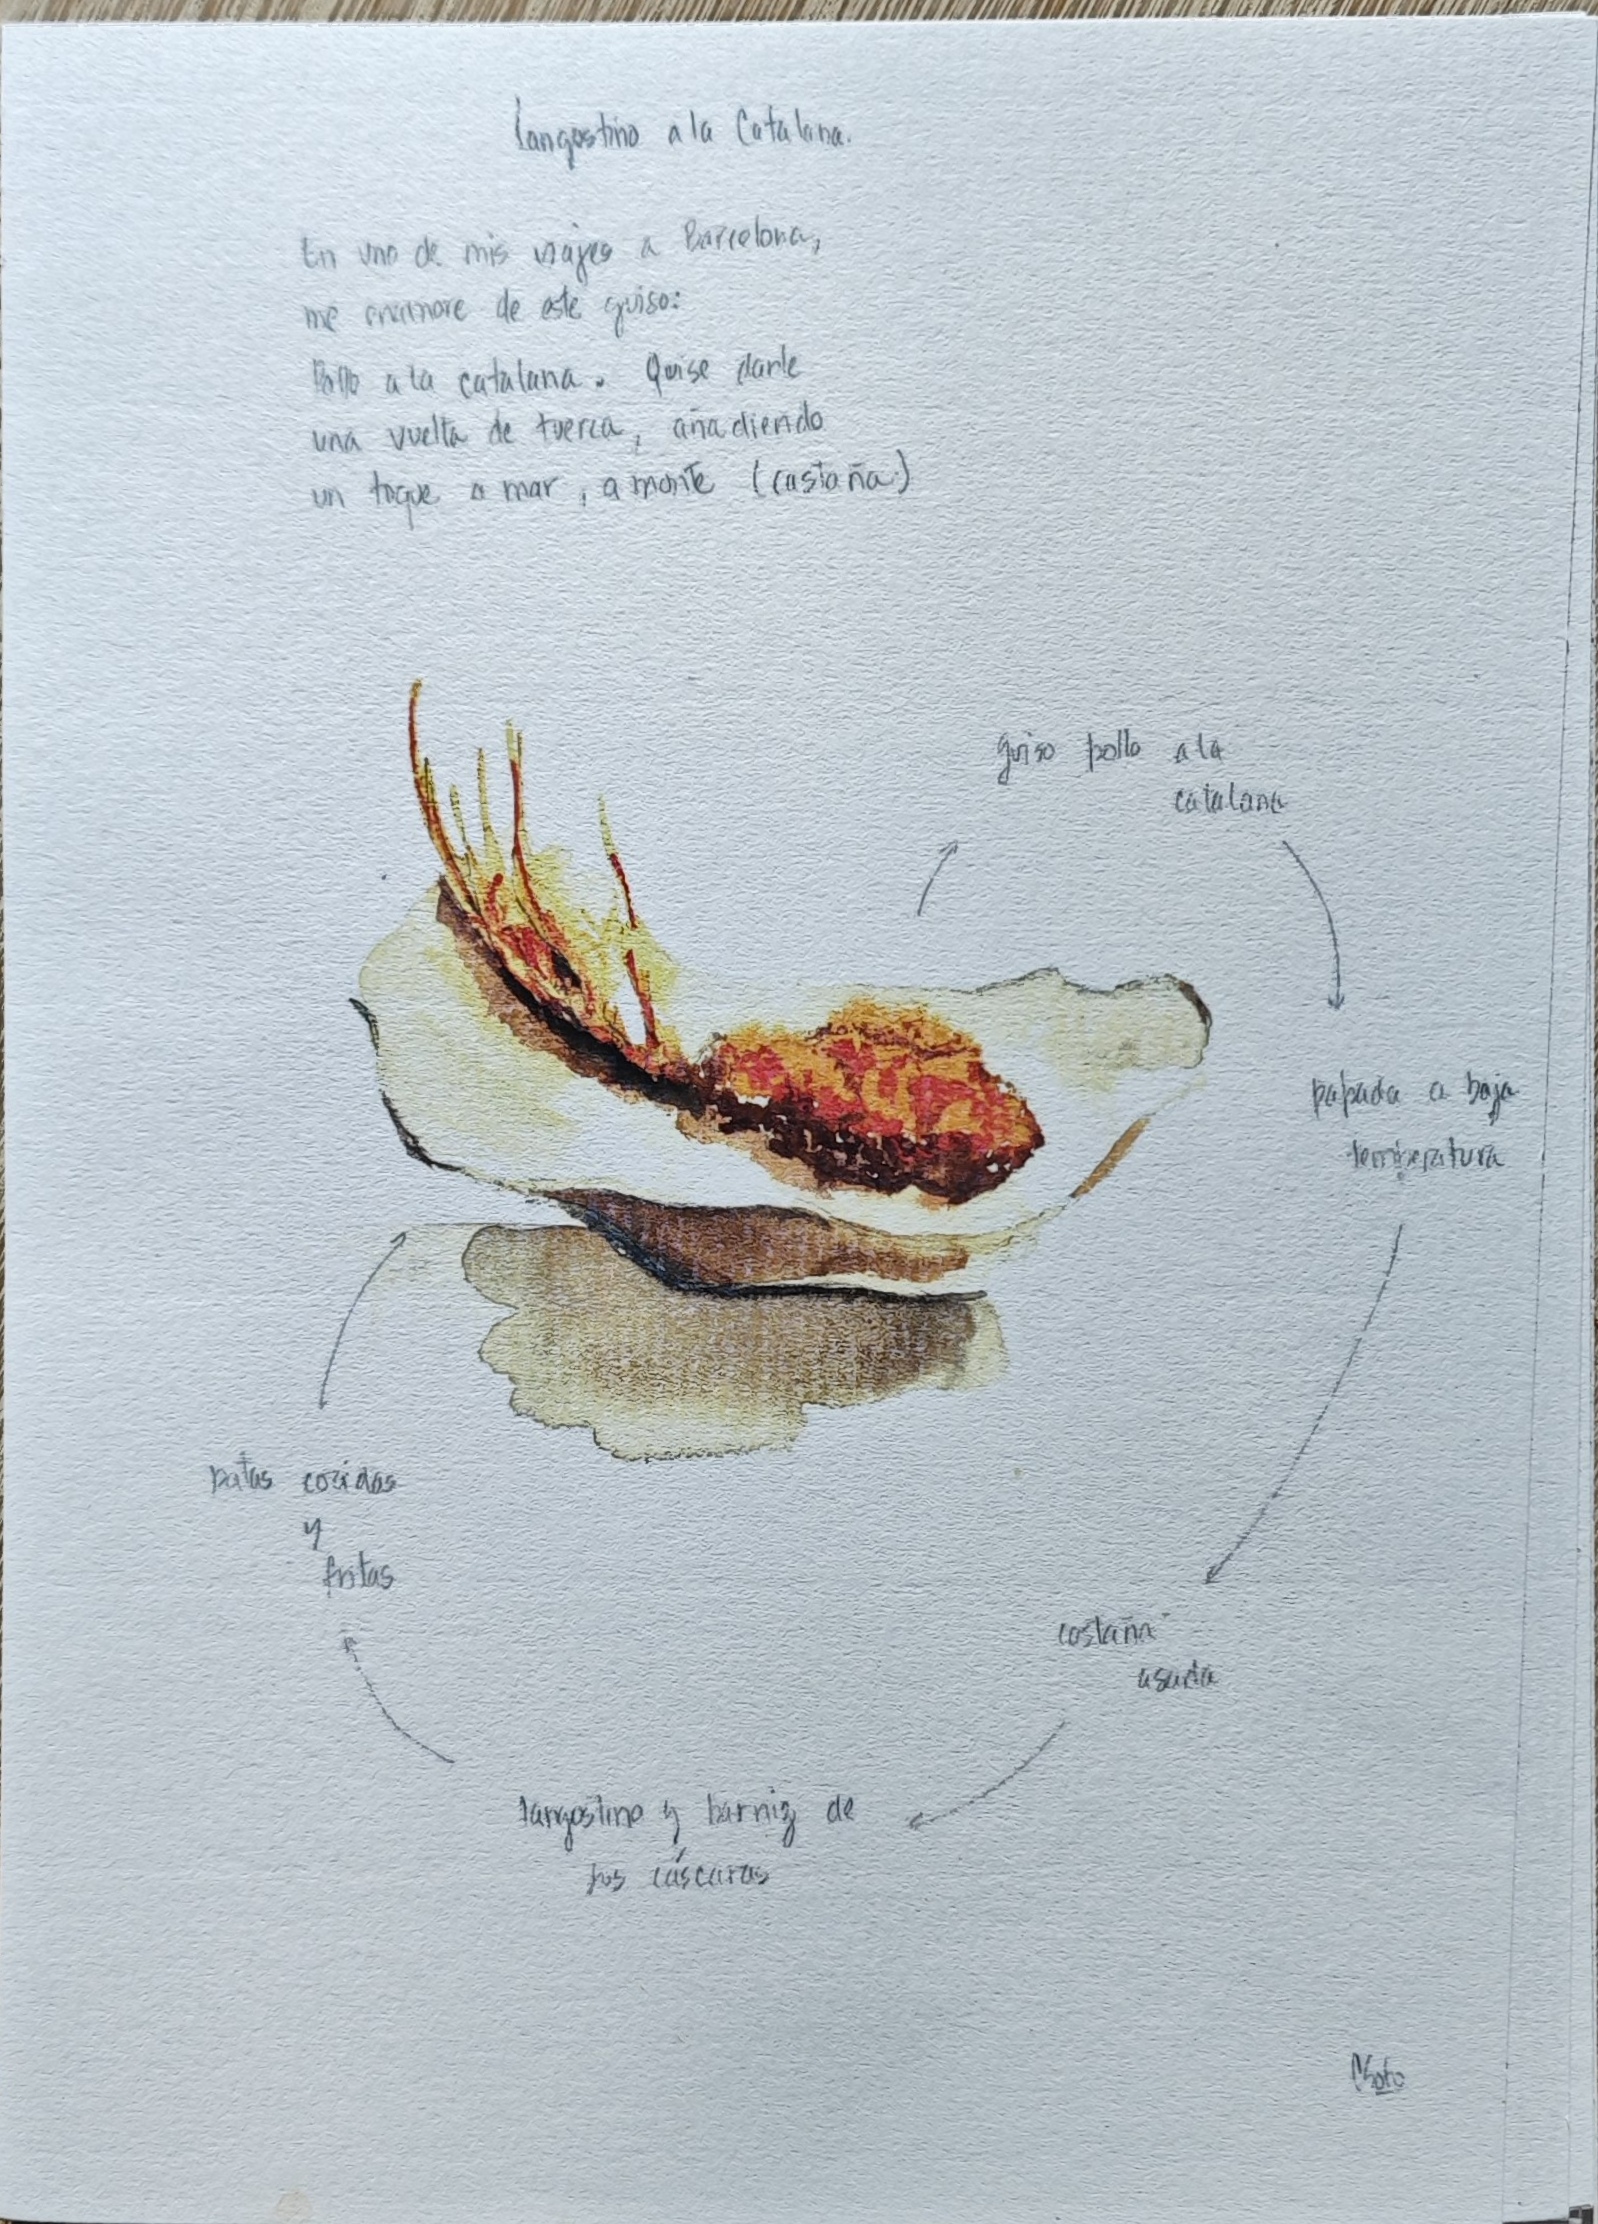 Langostino a la Catalana.
En uno de mis viajes a Barcelona,
me enamore de este guiso:
Pollo a la catalana. Quise darle
una vuelta de tuerca, añadiendo
un toque a mar, a monte (castaña)
guiso pollo a la
catalana
papada a baja
temperatura
castaña
asada
langostino y barniz de
sus cáscaras
patas cocidas
y
fritas
CSoto